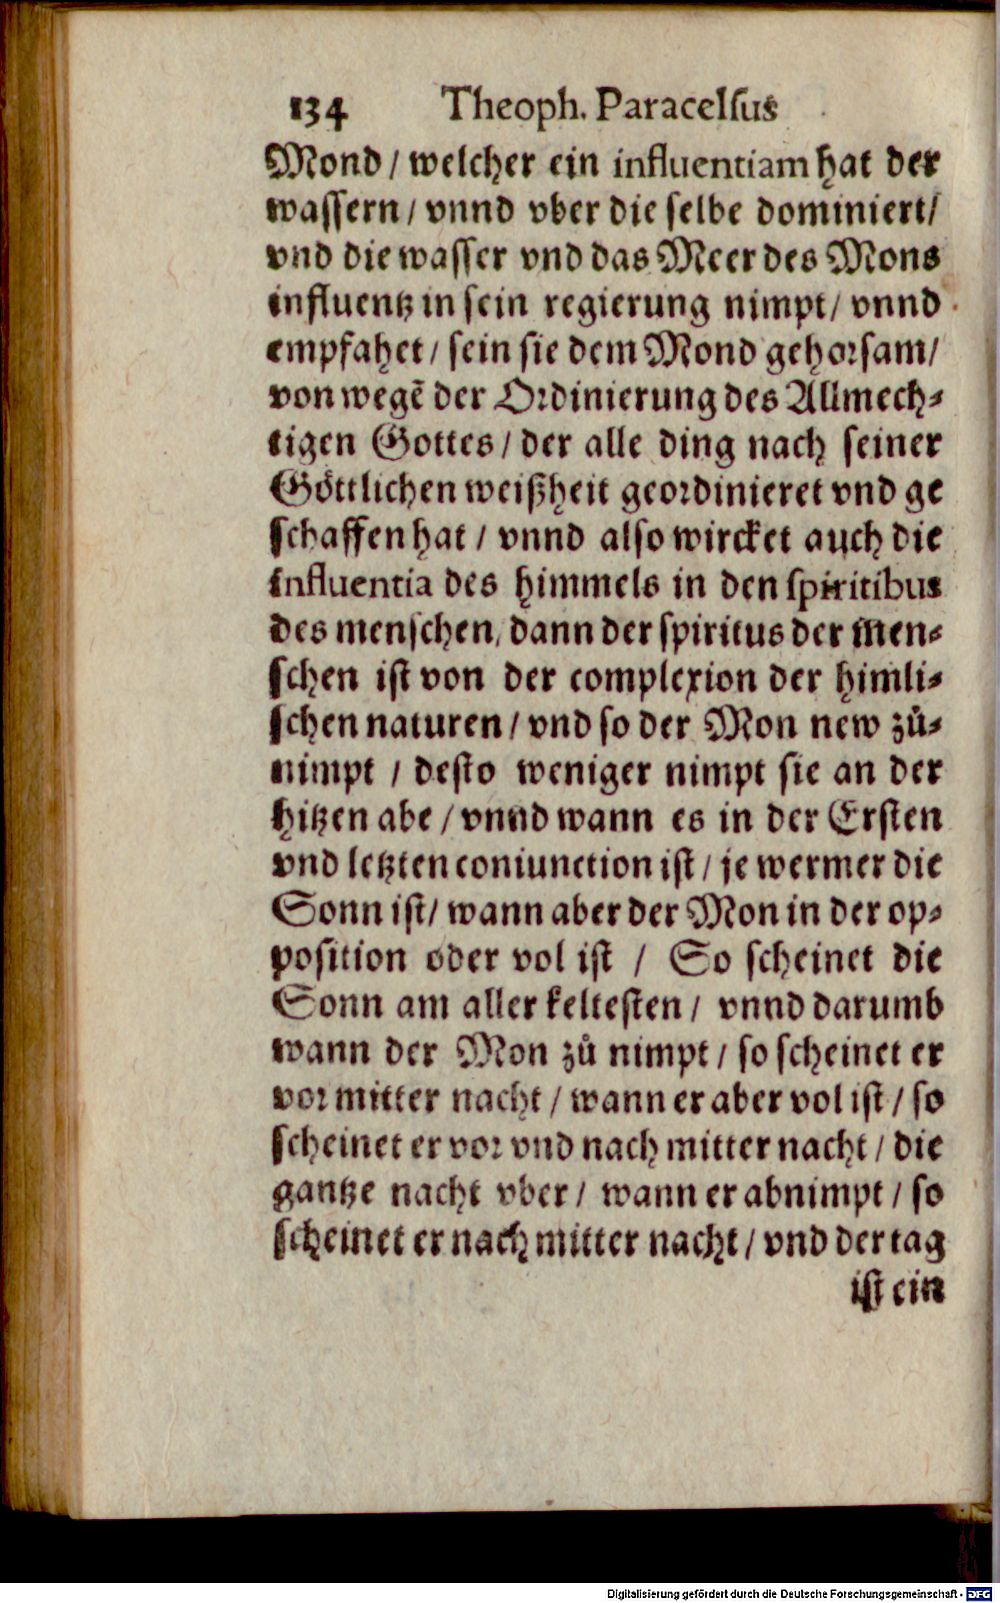 134 Theoph. Paracelsus
Mond / welcher ein influentiam hat der
wassern / vnnd vber die selbe dominiert /
vnd die wasser vnd das Meer des Mons
influentz in sein regierung nimpt / vnnd
empfahet / sein sie dem Mond gehorsam /
von wegẽ der Ordinierung des Allmech-
tigen Gottes / der alle ding nach seiner
Göttlichen weißheit geordinieret vnd ge
schaffen hat / vnnd also wircket auch die
influentia des himmels in den spiritibus
des menschen, dann der spiritus der men-
schen ist von der complexion der himli-
schen naturen / vnd so der Mon new zů-
nimpt / desto weniger nimpt sie an der
hitzen abe / vnnd wann es in der Ersten
vnd letzten coniunction ist / je wermer die
Sonn ist / wann aber der Mon in der op-
position oder vol ist / So scheinet die
Sonn am aller keltesten / vnnd darumb
wann der Mon zů nimpt / so scheinet er
vor mitter nacht / wann er aber vol ist / so
scheinet er vor vnd nach mitter nacht / die
gantze nacht vber / wann er abnimpt / so
scheinet er nach mitter nacht / vnd der tag
ist ein
Digitalisierung gefördert durch die Deutsche Forschungsgemeinschaft - DFG